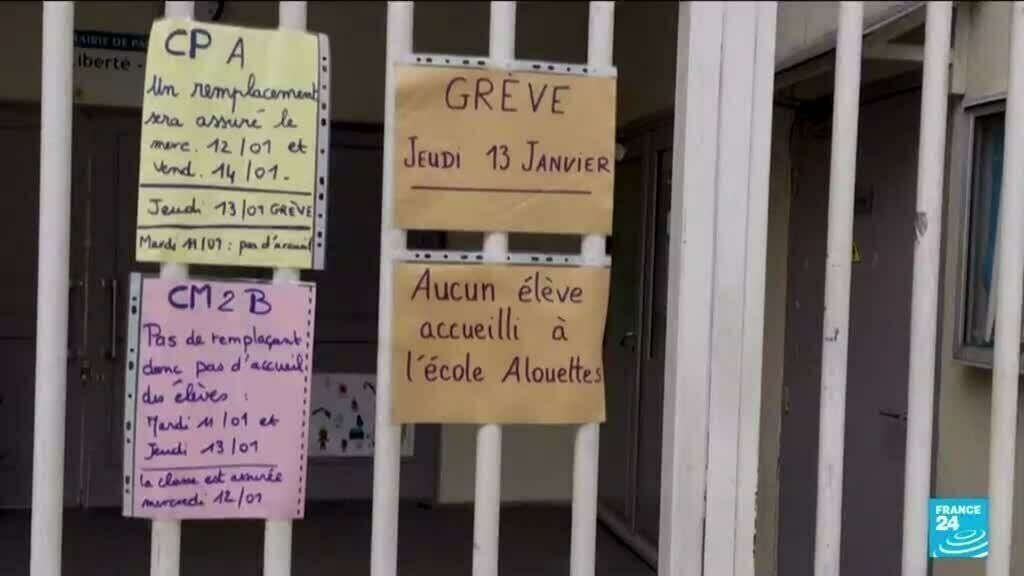 MAIRIE DE PA
Liberté -
CP A
Un remplacement
sera assuré le
merc. 12/01 et
Vend. 14/01.
Jeudi 13/01 GRÈVE
Mardi 11/01 : pas d'accueil
CM2 B
Pas de remplaçant
donc pas d'accueil
des élèves :
Mardi 11/01 et
Jeudi 13/01
la classe est assurée
mercredi 12/01
GRÈVE
JEUDI 13 JANVIER
Aucun élève
accueilli à
l'école Alouettes
FRANCE
24